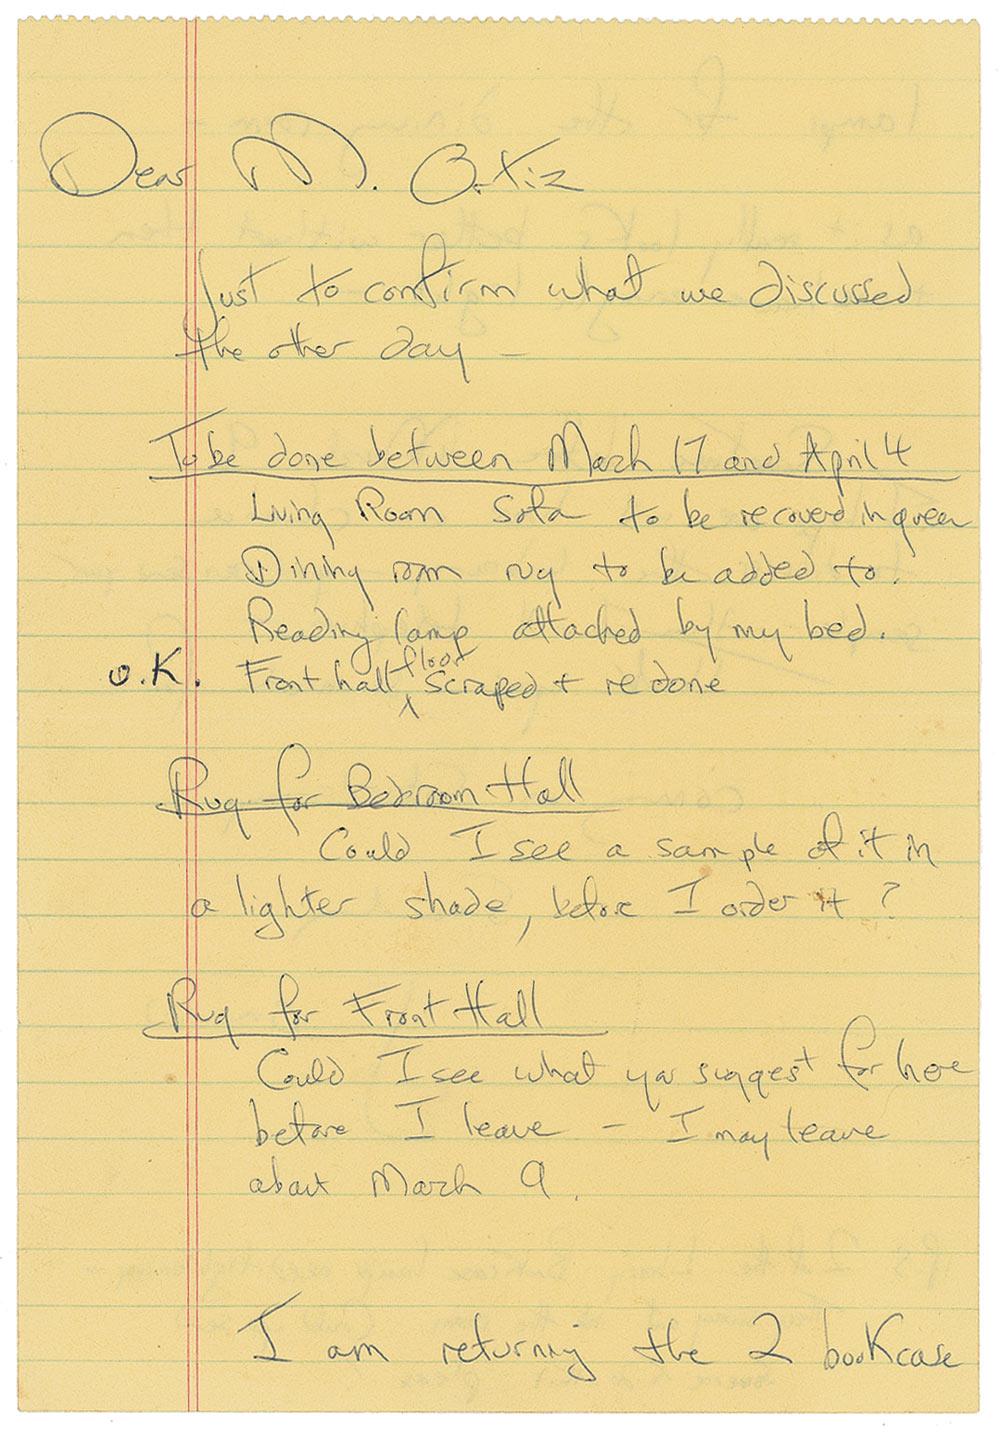 Dear M. Ortiz
Just to confirm what we discussed
the other day –
To be done between March 17 and April 4
Living Room Sofa to be recovered in green
Dining room rug to be added to.
Reading lamp attached by my bed.
O.K. Front hall floor scraped + redone
Rug for Bedroom Hall
Could I see a sample of it in
a lighter shade, before I order it?
Rug for Front Hall
Could I see what you suggest for here
before I leave – I may leave
about March 9.
I am returning the 2 bookcase